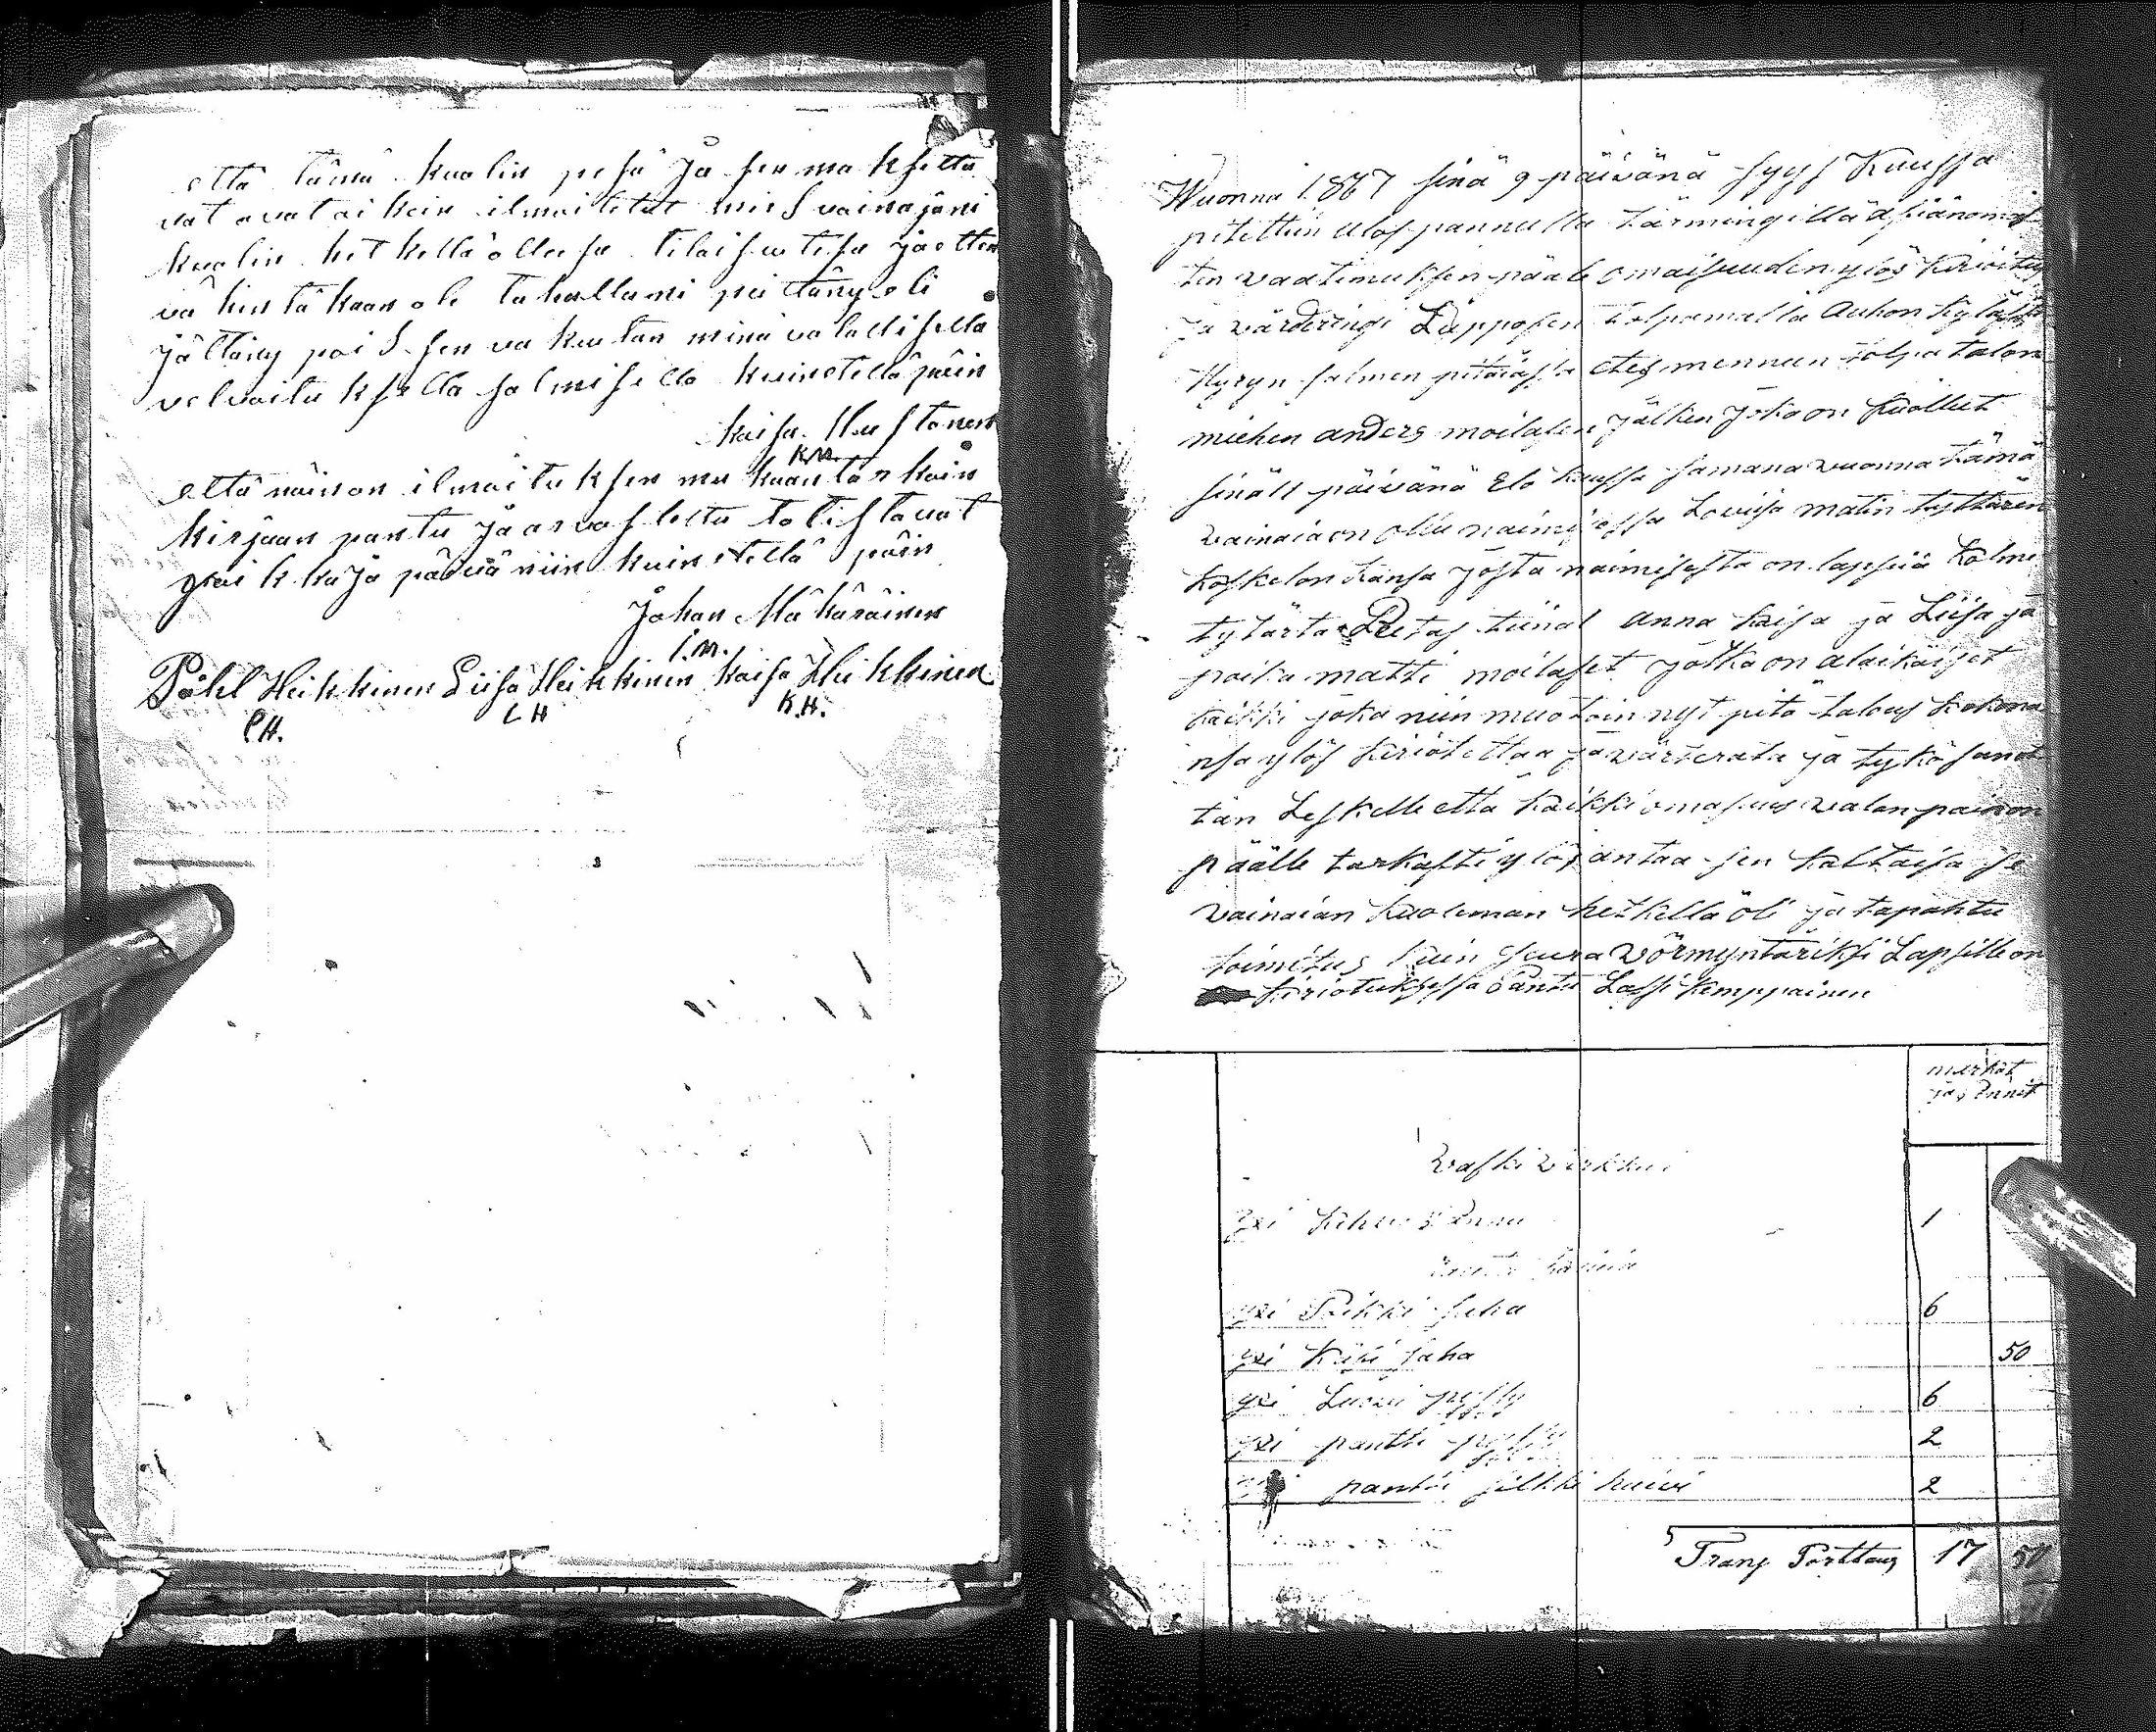 että tämä kuolin pesä ja sen maksetta
vat ovat oikein ilmoitetut mies vainajani
kuolin hetkellä olleesa tilaisuutesa ja etten
vähintäkään ole tahallani peittäny eli
jättäny pois sen vakuutan minä valallisella
velvoituksella jolmisella kuin etellä päin
Kaisa Mustonen
K.M.
että näin on ilmoituksen mukaan tarkoin
kirjaan pantu ja arvosteltu totistavat
paikka ja päivä niin kuin etellä päin
Johan Mäkäräinen
I.M.
Påhl Heikkinen Liisa Heikkinen Kaisa Heikkinen
P.H. L H K.H.
Wuonna 1867 sinä 9 päivänä syys Kuussa
pitettiin ulos pannulla tärmingillä asianomas
ten vaatimuksen pääle omaisuuden ylös kirioitus
ja värderingi Lapposen tolpamalla Auhon kylässä
Hyryn salmen pitäiässä etes mennen tolpa talon
miehen anders moilasen jälken joka on kuollut
sinä 11 päivänä Elo kuussa samana vuonna tämä
vainaia on ollu naimisessa Lovisa matin tyttären
koskelon kansa josta naimisesta on lapsia kolme
tytärtä Reetas tiinal anna kaisa ja Liisa ja
poika matti moilaset jotka on alaikäiset
kaikki joka niin muotoin nyt pitä talous kokona
nsa ylös kiriotettaa ja värterata ja tykö sanot
tän Leskelle että kaikki omasuus valan painon
päälle tarkasti ylös antaa sen kaltaisa se
vainaian kuoleman hetkellä oli ja tapahtu
toimitus kuin seura Wörmyntäriksi Lapsille on
kiriotuksessa Pantu Lassi Kemppainen
merkat
ja pennit
Waski
yxi kahvi Pannu 1
yxi Poikki saha 6
yxi Käsi saha 50
yxi Luoti pyssy 6
yxi pantti pyssy 2
pantti 2
Trans Porttaus 17 50